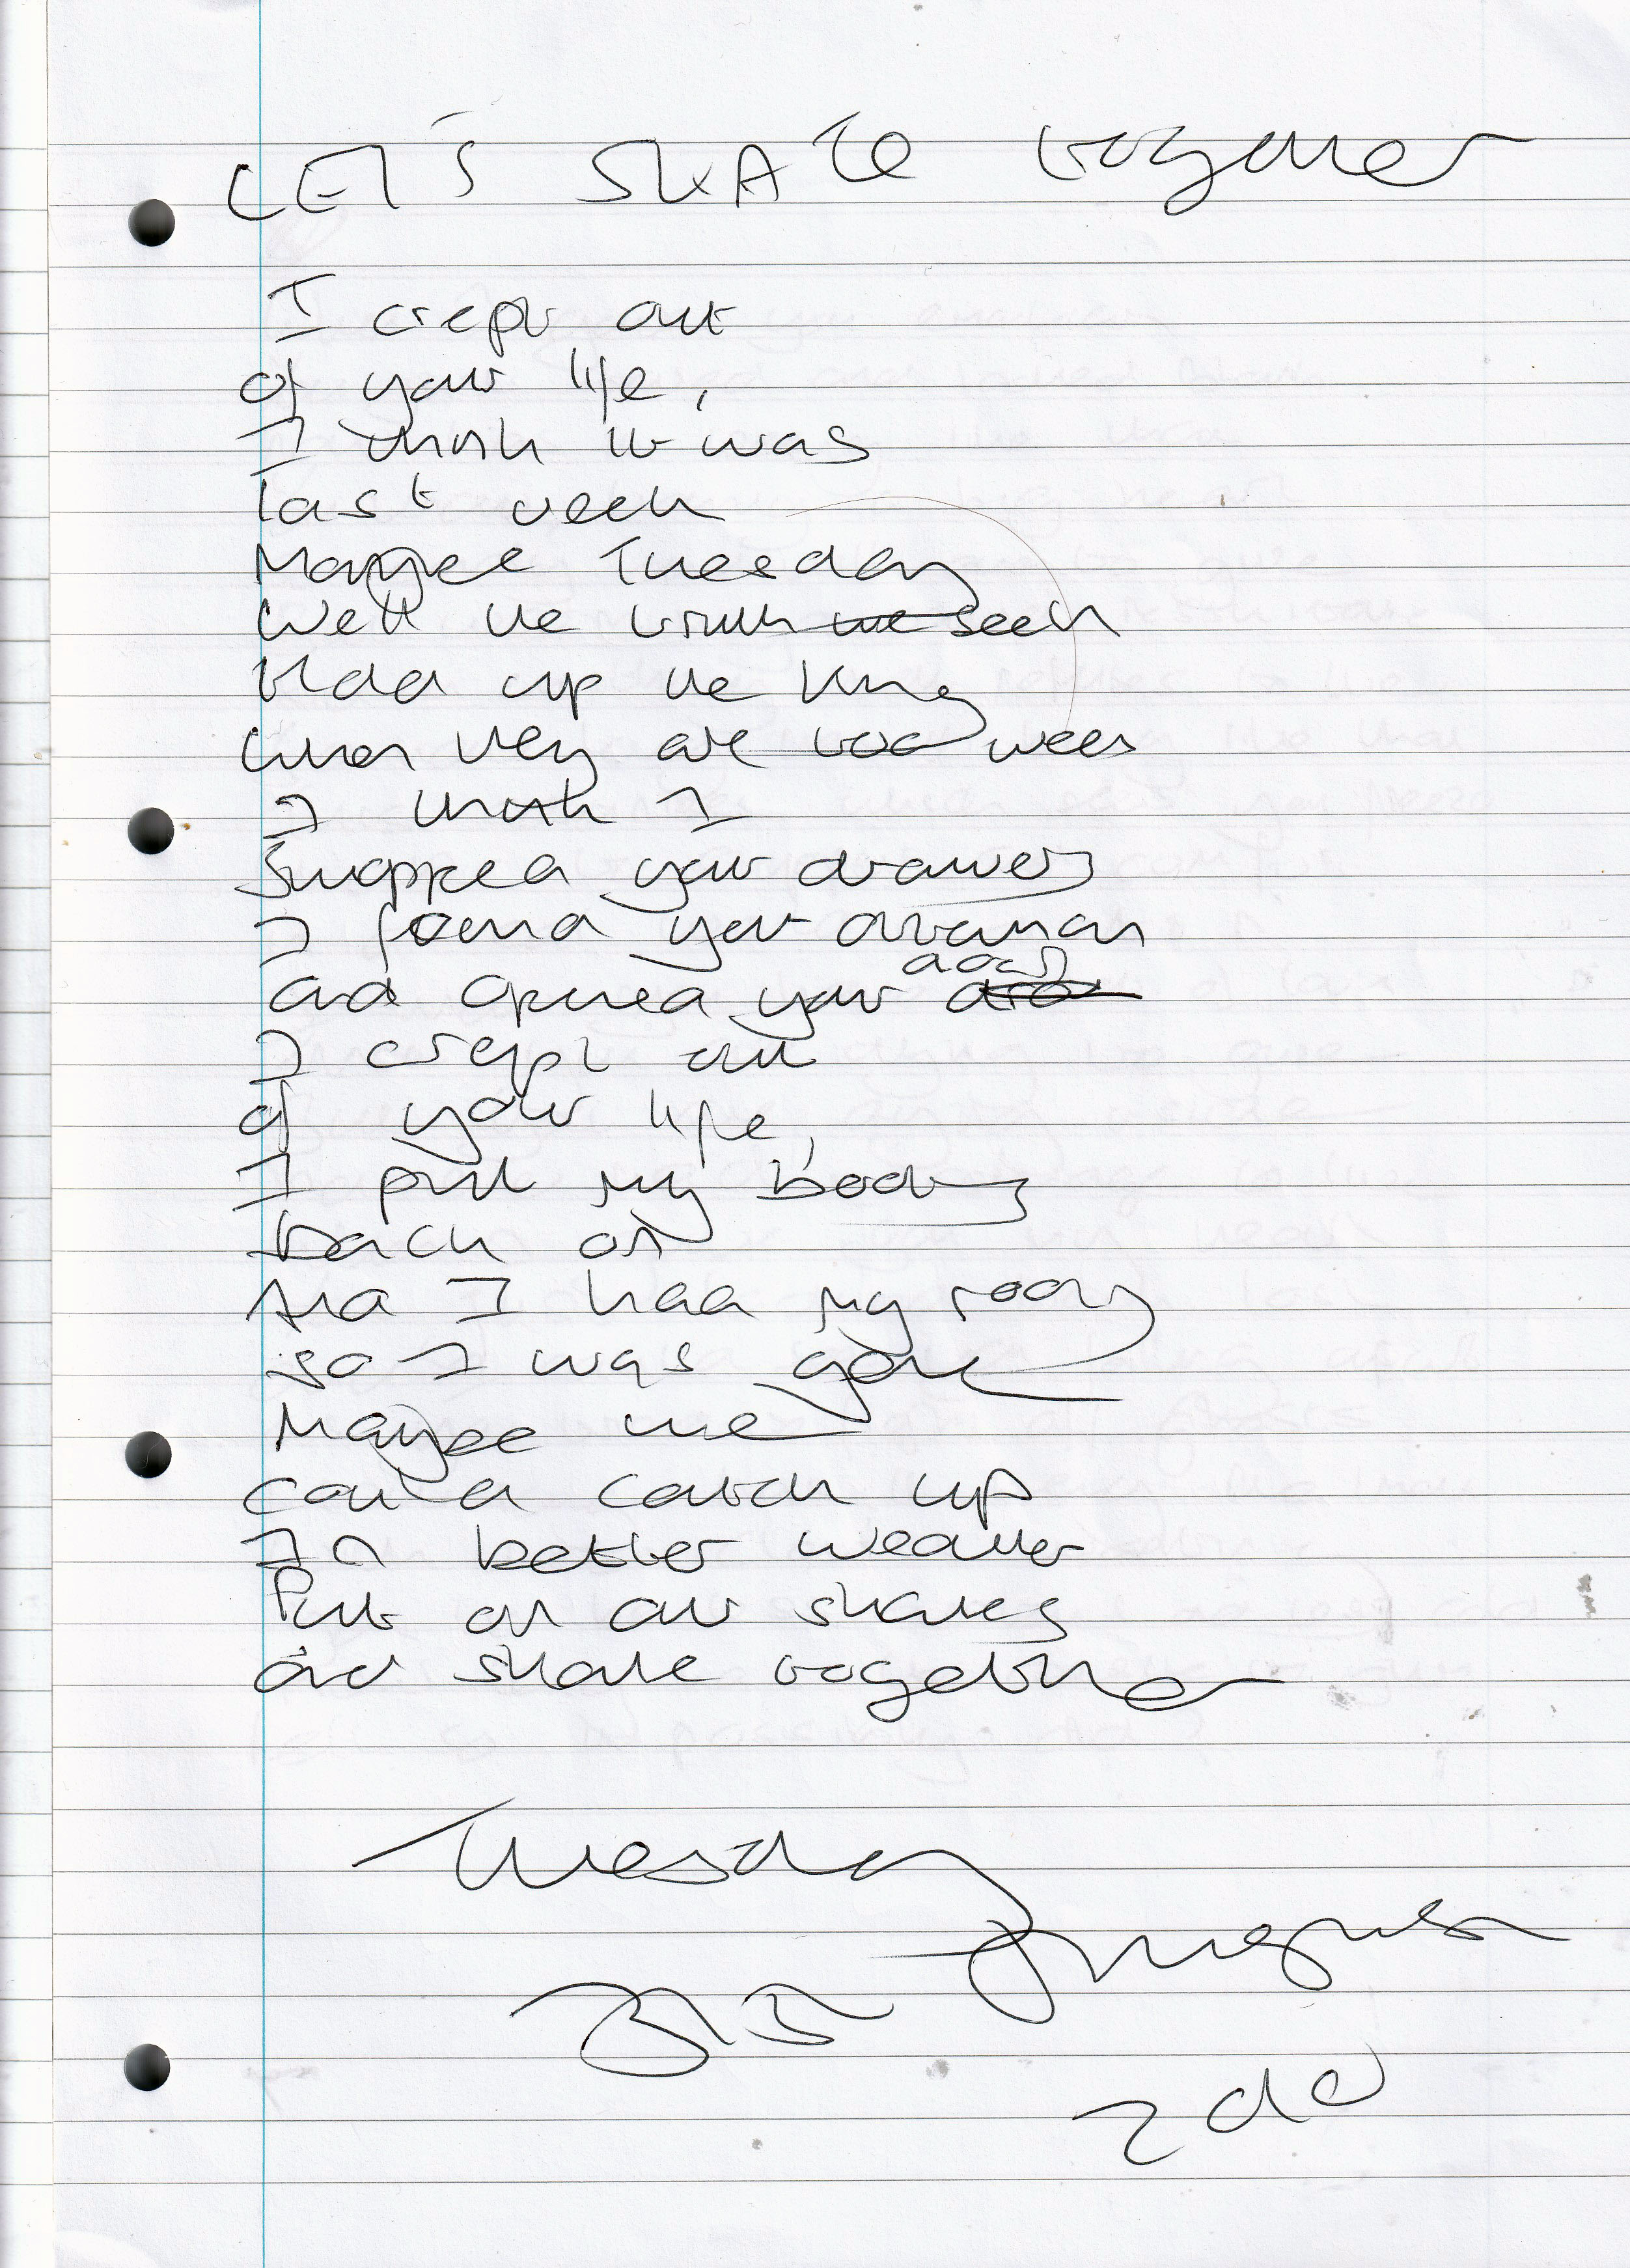 LET'S SKATE together
I crept out
of your life,
I think it was
last week
Maybee Tuesday
Well the truth we seek
Hold up the King
When they are too weak
I think I
Swopped your drawers
I found your
and opened your doors
I crept out
of your life,
I put my body
back on
And I had my body
so I was gone
Maybee we
could catch up
In better weather
Put on our skates
and skate together
Tuesday